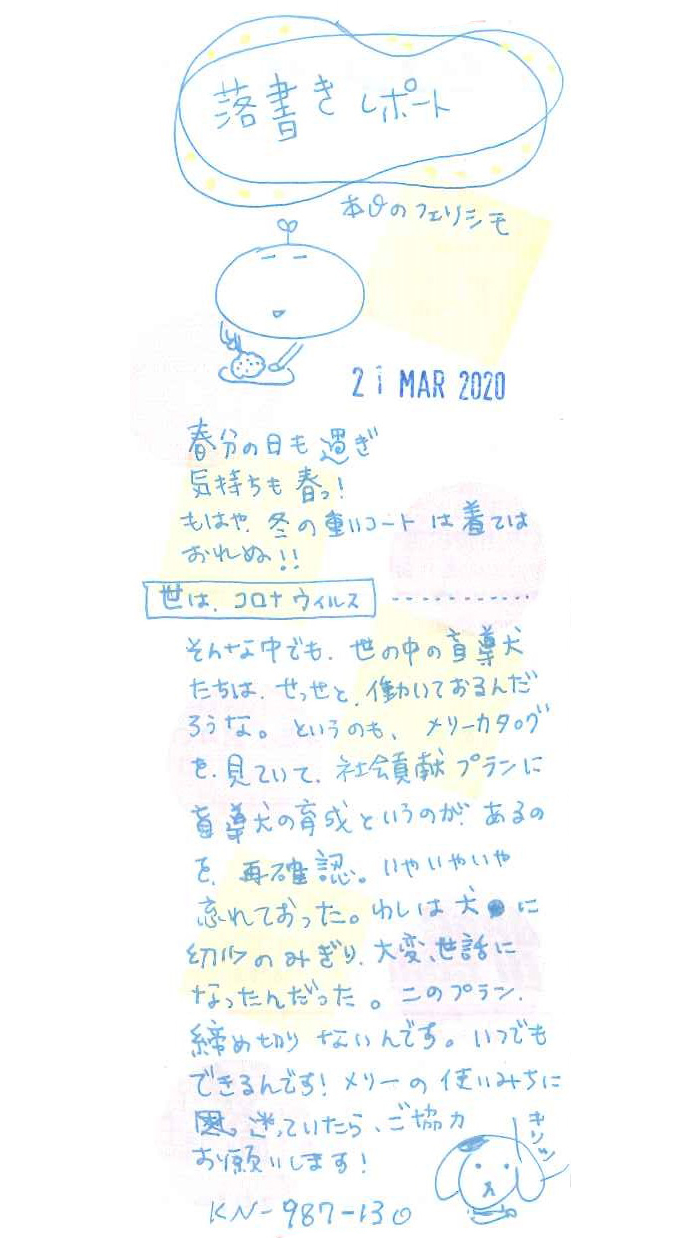 落書きレポート
本日のフェリシモ
21 MAR 2020
春分の日も過ぎ
気持ちも春っ!
もはや、冬の重いコートは着ては
おれぬ!!
世は、コロナウィルス -----------
そんな中でも、世の中の盲導犬
たちは、せっせと、働いておるんだ
ろうな。というのも、メリーカタログ
を、見ていて、社会貢献プランに
盲導犬の育成というのが、あるの
を、再確認。いやいやいや
忘れておった。わしは犬に
幼少のみぎり、大変、世話に
なったんだった。このプラン、
締め切りないんです。いつでも
できるんです!メリーの使いみちに
迷っていたら、ご協力
お願いします!
キリッ
KN-987-130